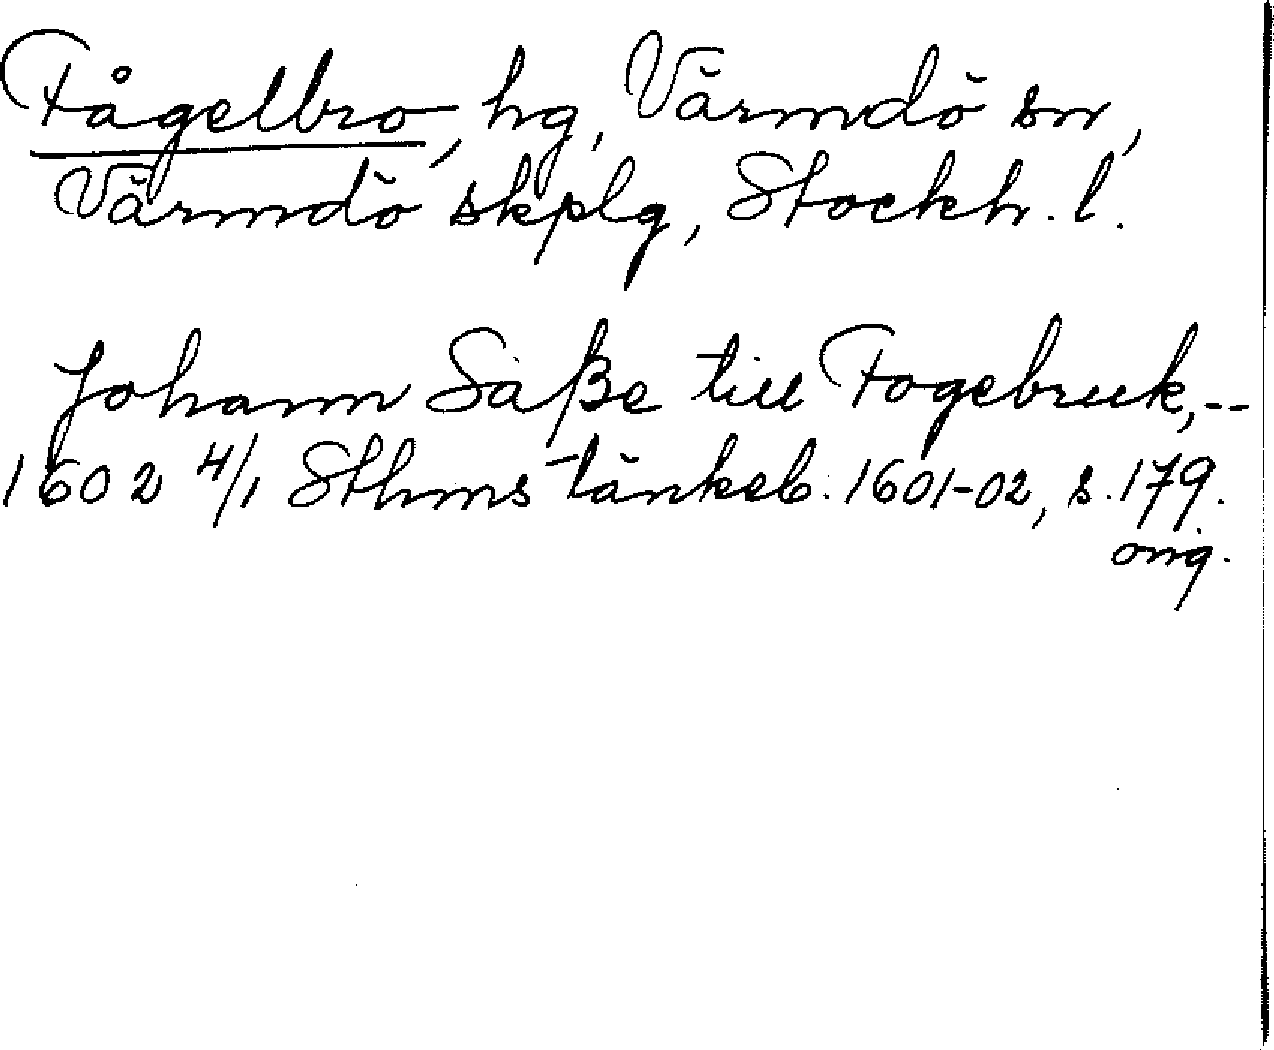 Fågelbro, hg, Värmdö sn,
Värmdö skplg, Stockh. l.
Johann Saße till Fogebruk,--
1602 4/1 Sthms tänkeb. 1601-02, s. 179.
orig.